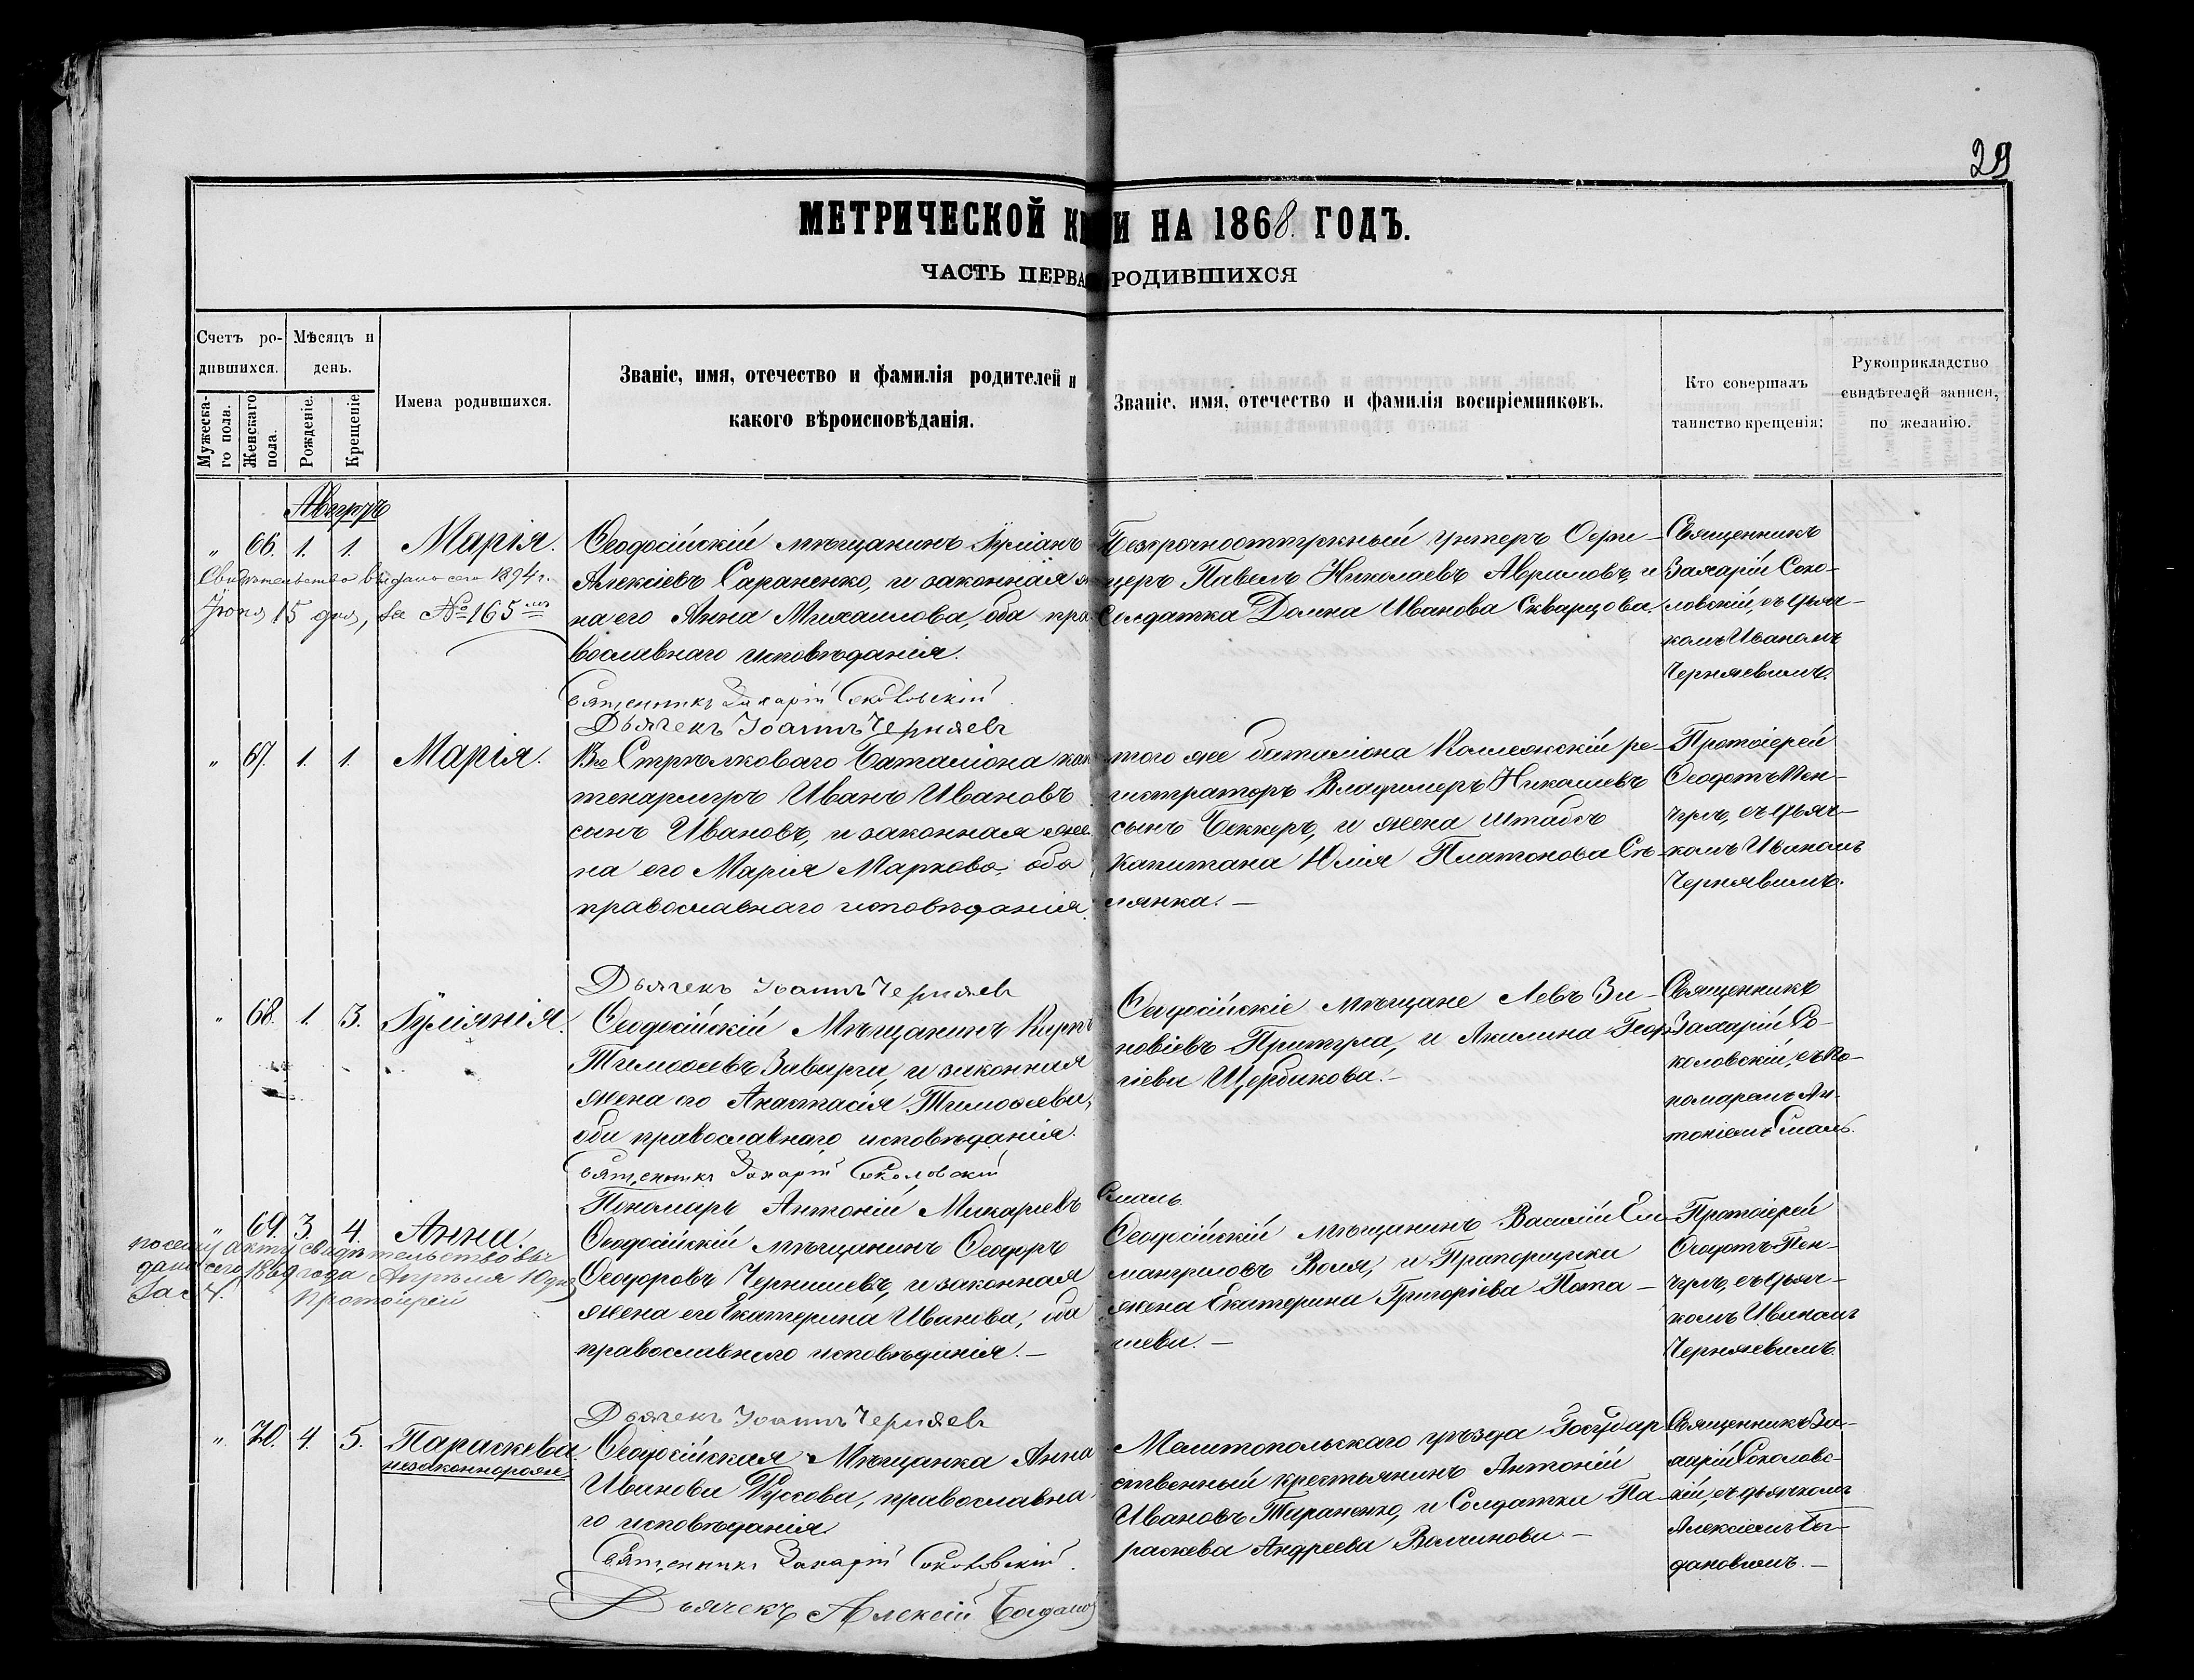 29
МЕТРИЧЕСКОЙ КН И НА 1868. ГОДЪ.
ЧАСТЬ ПЕРВА РОДИВШИХСЯ
Счетъ ро-
дившихся.
Мужеска-
го пола.
Женскаго
пола.
Мѣсяцъ и
день.
Рожденіе.
Крещеніе.
Имена родившихся.
Званіе, имя, отечество и фамилія родителей и
какого вѣроисповѣданія.
Званіе, имя, отечество и фамилія воспріемниковъ.
Кто совершалъ
таинство крещенія:
Рукоприкладство
свидѣтелей записи,
по желанію.
Августъ
" 66. 1. 1. Марія.
Свидѣтельство выдано сего 1894 г.
Іюня 15 дня, за № 165
Ѳеодосійскій мѣщанинъ Іуліанъ
Алексіевъ Сараненко, и законная же
на его Анна Михаилова, оба пра-
вославнаго исповѣданія.
Священникъ Захарій Соколовскій
Дьячекъ Іоаннъ Черняевъ
Безсрочноотпускный унтеръ Офи-
церъ Павелъ Николаевъ Авримовъ, и
Солдатка Домна Иванова Скварцова.
Священникъ
Захарій Соко-
ловскій, съ дьяч-
комъ Иваномъ
Черняевымъ.
" 67. 1. 1. Марія.
Стрѣлковаго Баталіона кап
тенармусъ Иванъ Ивановъ
сынъ Ивановъ, и законная же
на его Марія Маркова, оба
православнаго исповѣданія.
Дьячекъ Іоаннъ Черняевъ
того же баталіона Коллежскій ре-
гистраторъ Владимеръ Николаевъ
сынъ Беккеръ, и жена штабсъ
Капитана Юлія Платонова Съ-
лянка. —
Протоіерей
Ѳеодотъ Пен-
чулъ, съ дьяч-
комъ Иваномъ
Чернявимъ.
" 68. 1. 3. Іуліянія.
Ѳеодосійскій Мѣщанинъ Карпъ
Тимоѳеевъ Заварза, и законная
жена его Анастасія Тимоѳеева,
оба православнаго исповѣданія.
Священникъ Захарій Соколовскій
Пономарь Антоній Макаріевъ Смаль.
Ѳеодосійскіе мѣщане Левъ Зи-
новіевъ Притула, и Акилина Геор-
гіева Щербакова. —
Священникъ
Захарій Со-
коловскій, съ по-
номаремъ Ан-
тоніемъ Смаль.
" 69. 3. 4. Анна.
по сему акту свидѣтельство вы-
дано сего 1869 года Апрѣля 10 дня
За № 4. Протоіерей
Ѳеодосійскій мѣщанинъ Ѳеодоръ
Ѳеодоровъ Чернышевъ, и законная
жена его Екатерина Иванова, оба
православнаго исповѣданія. —
Дьячекъ Іоаннъ Черняевъ
Ѳеодосійскій мѣщанинъ Василій Ем-
мануиловъ Воля, и Прапорщика
жена Екатерина Григоріева Пота-
шева. —
Протоіерей
Ѳеодотъ Пен-
чулъ, съ дьяч-
комъ Иваномъ
Черняевымъ.
" 70. 4. 5. Параскева.
незаконнорожд
Ѳеодосійская Мѣщанка Анна
Иванова Руссова, православна-
го исповѣданія
Священникъ Захарій Соколовскій.
Дьячекъ Алексій Богданов
Мелитопольскаго уѣзда Государ-
ственный крестьянинъ Антоній
Ивановъ Тараненко, и Солдатка Па-
раскева Андреева Волчинова —
Священникъ За-
харій Соколовс-
кій, съ дьячкомъ
Алексіемъ Бог-
дановымъ. —